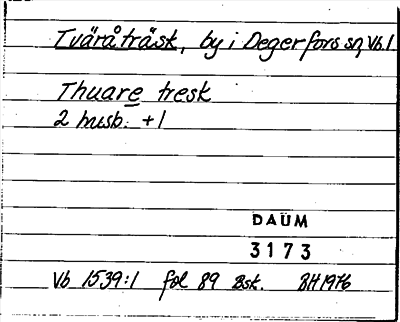 Tväråträsk, by i Degerfors sn, Vb. l
Thuare tresk
2 husb. + l
DAÜM
3173
Vb 1539:1 fol 89 Bsk. BH 1976